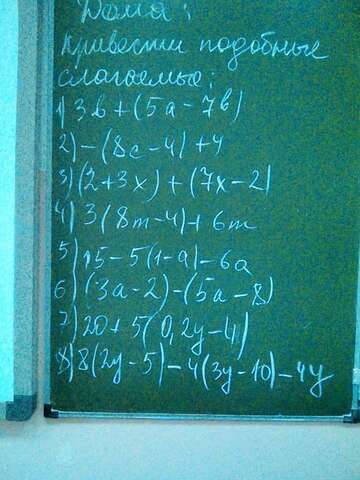 Дома:
Привести подобные
слагаемые:
1) 3в + (5а - 7в)
2) -(8с - 4) + 4
3) (2 + 3x) + (7x - 2)
4) 3(8m - 4) + 6m
5) 15 - 5(1 - a) - 6a
6) (3a - 2) - (5a - 8)
7) 20 + 5(0,2y - 4)
8) 8(2y - 5) - 4(3y - 10) - 4y